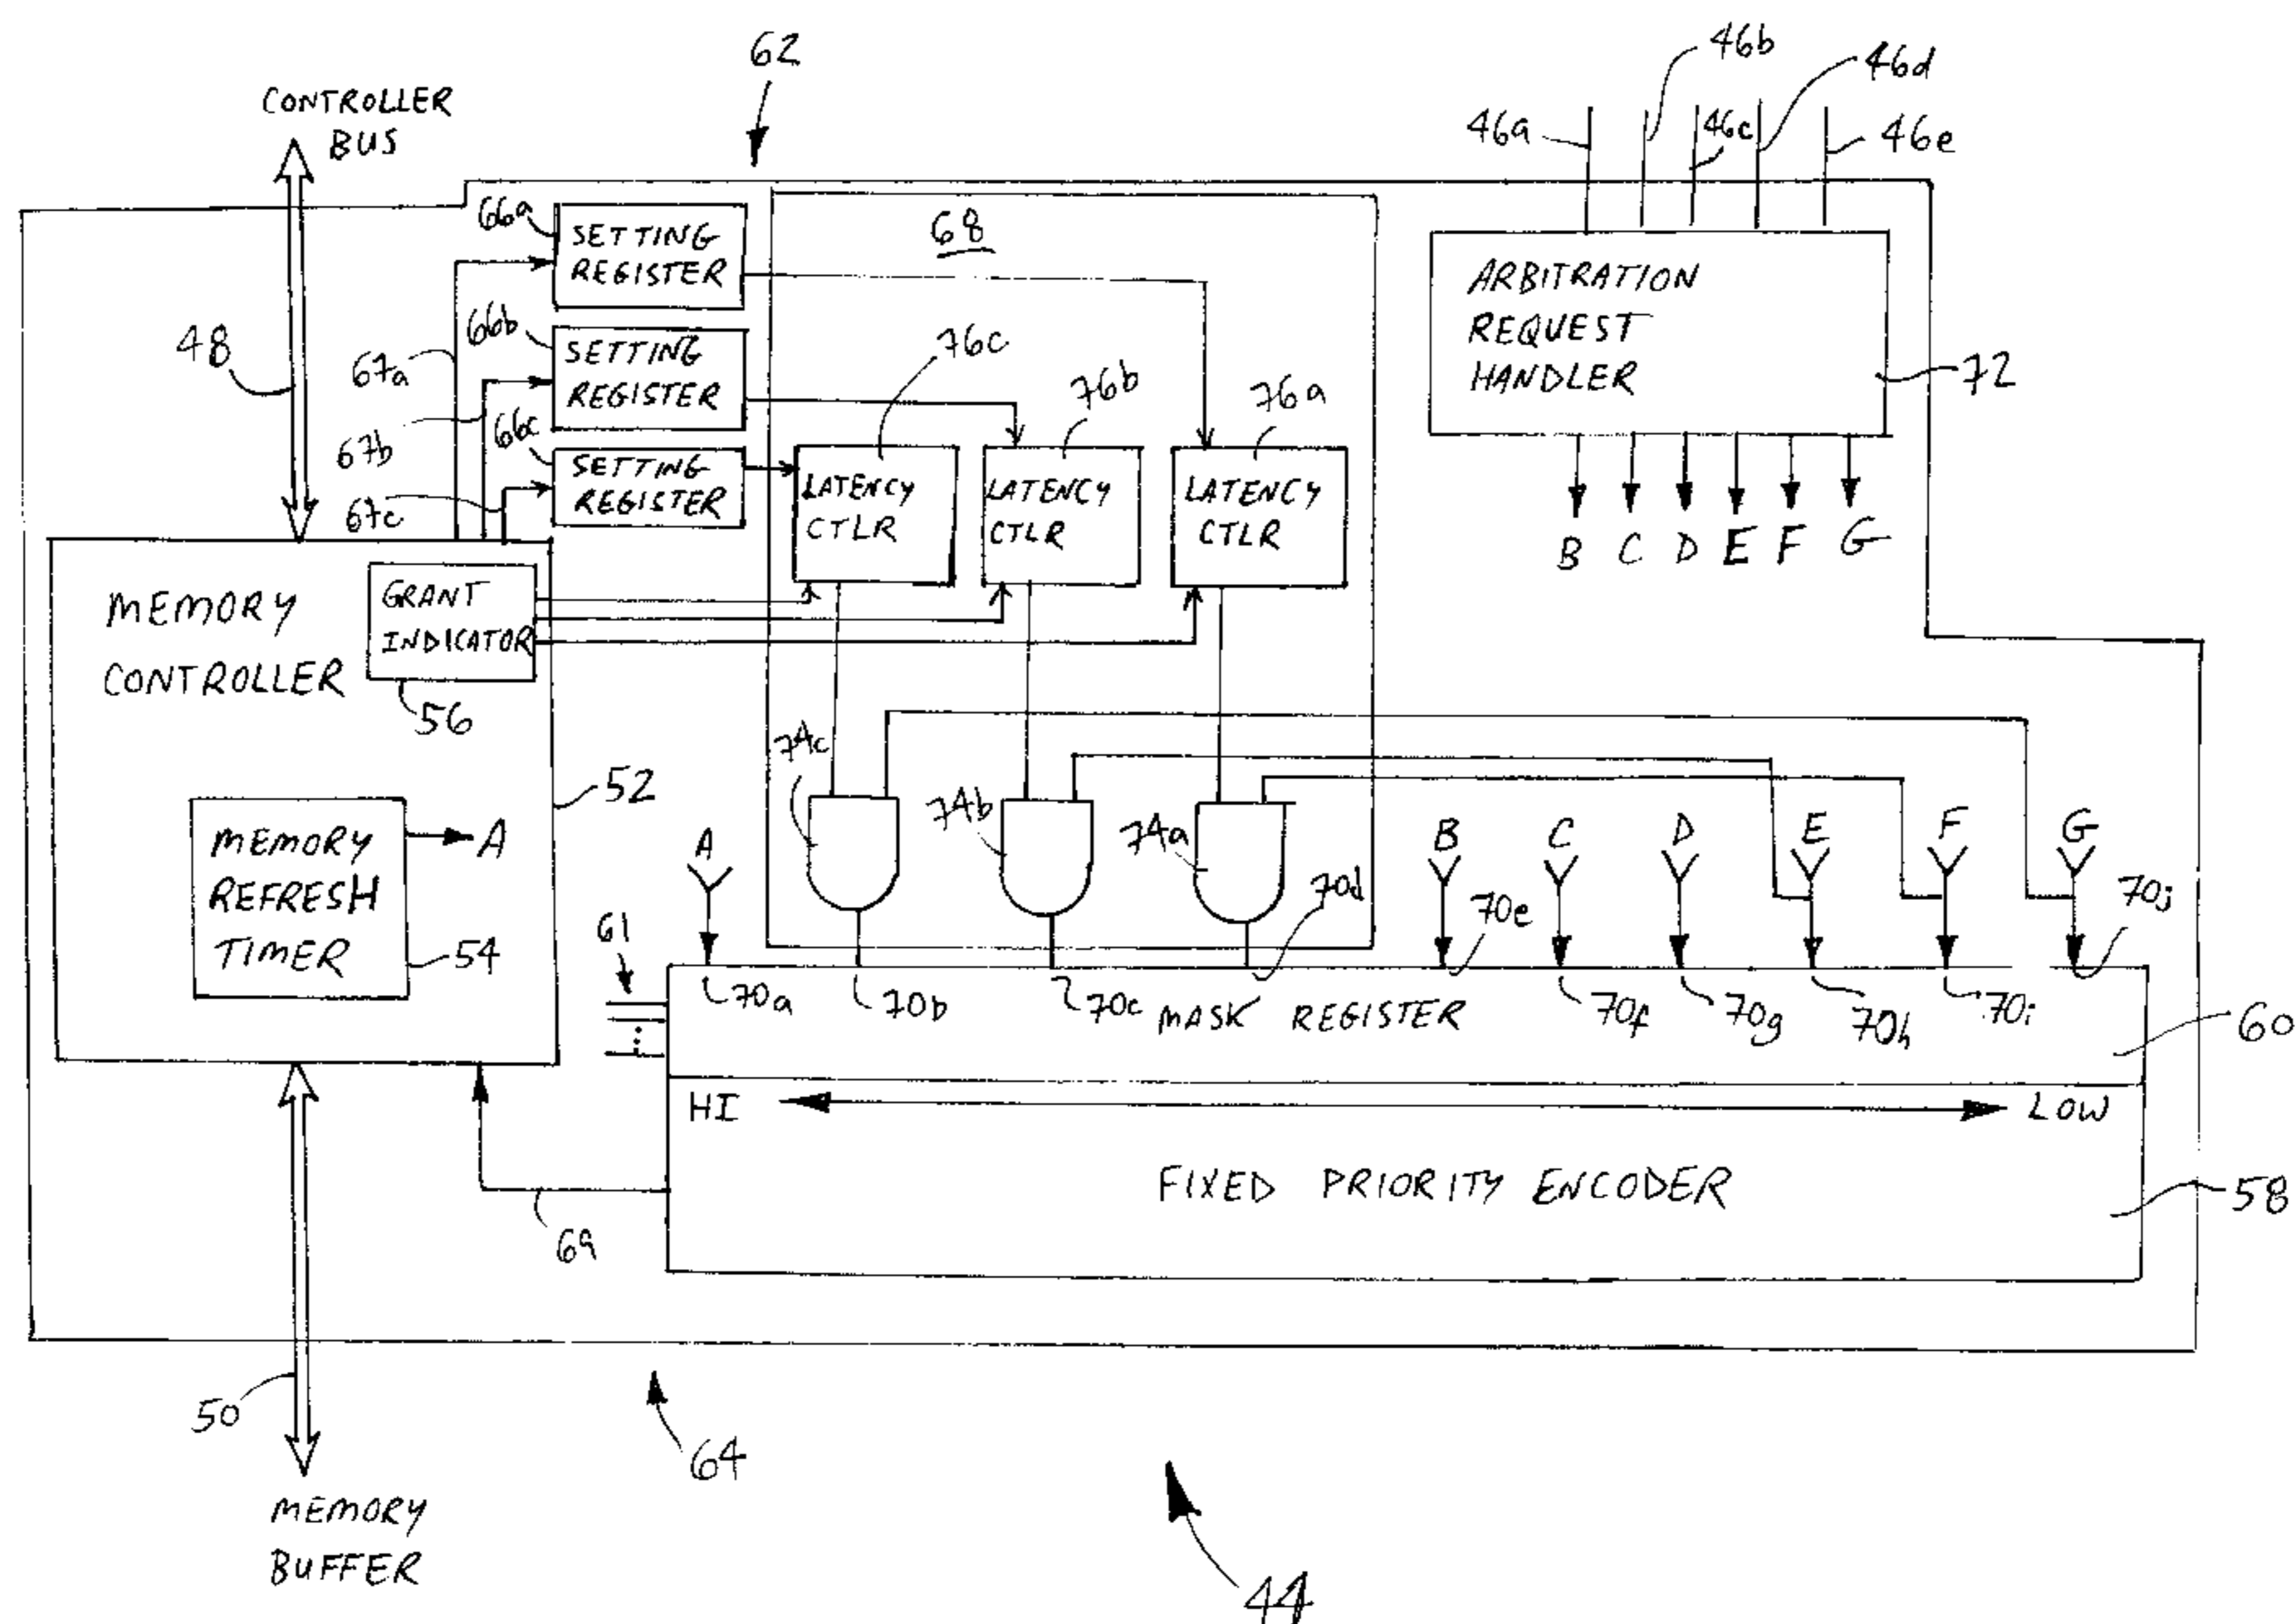 62
46b
46d
CONTROLLER
BUS
46a
46c
46e
66a
SETTING
REGISTER
68
ARBITRATION
REQUEST
HANDLER
72
48
67a
66b
SETTING
REGISTER
76c
76b
76a
67b
66c
SETTING
REGISTER
LATENCY
CTLR
LATENCY
CTLR
LATENCY
CTLR
67c
B C D E F G
MEMORY
CONTROLLER
GRANT
INDICATOR
56
52
74c
74b
74a
MEMORY
REFRESH
TIMER
A
54
A
B C D E F G
70d
70e
70j
61
70a
70b
70c
MASK REGISTER
70f
70g
70h
70i
60
HI
LOW
FIXED PRIORITY ENCODER
58
69
50
64
MEMORY
BUFFER
44